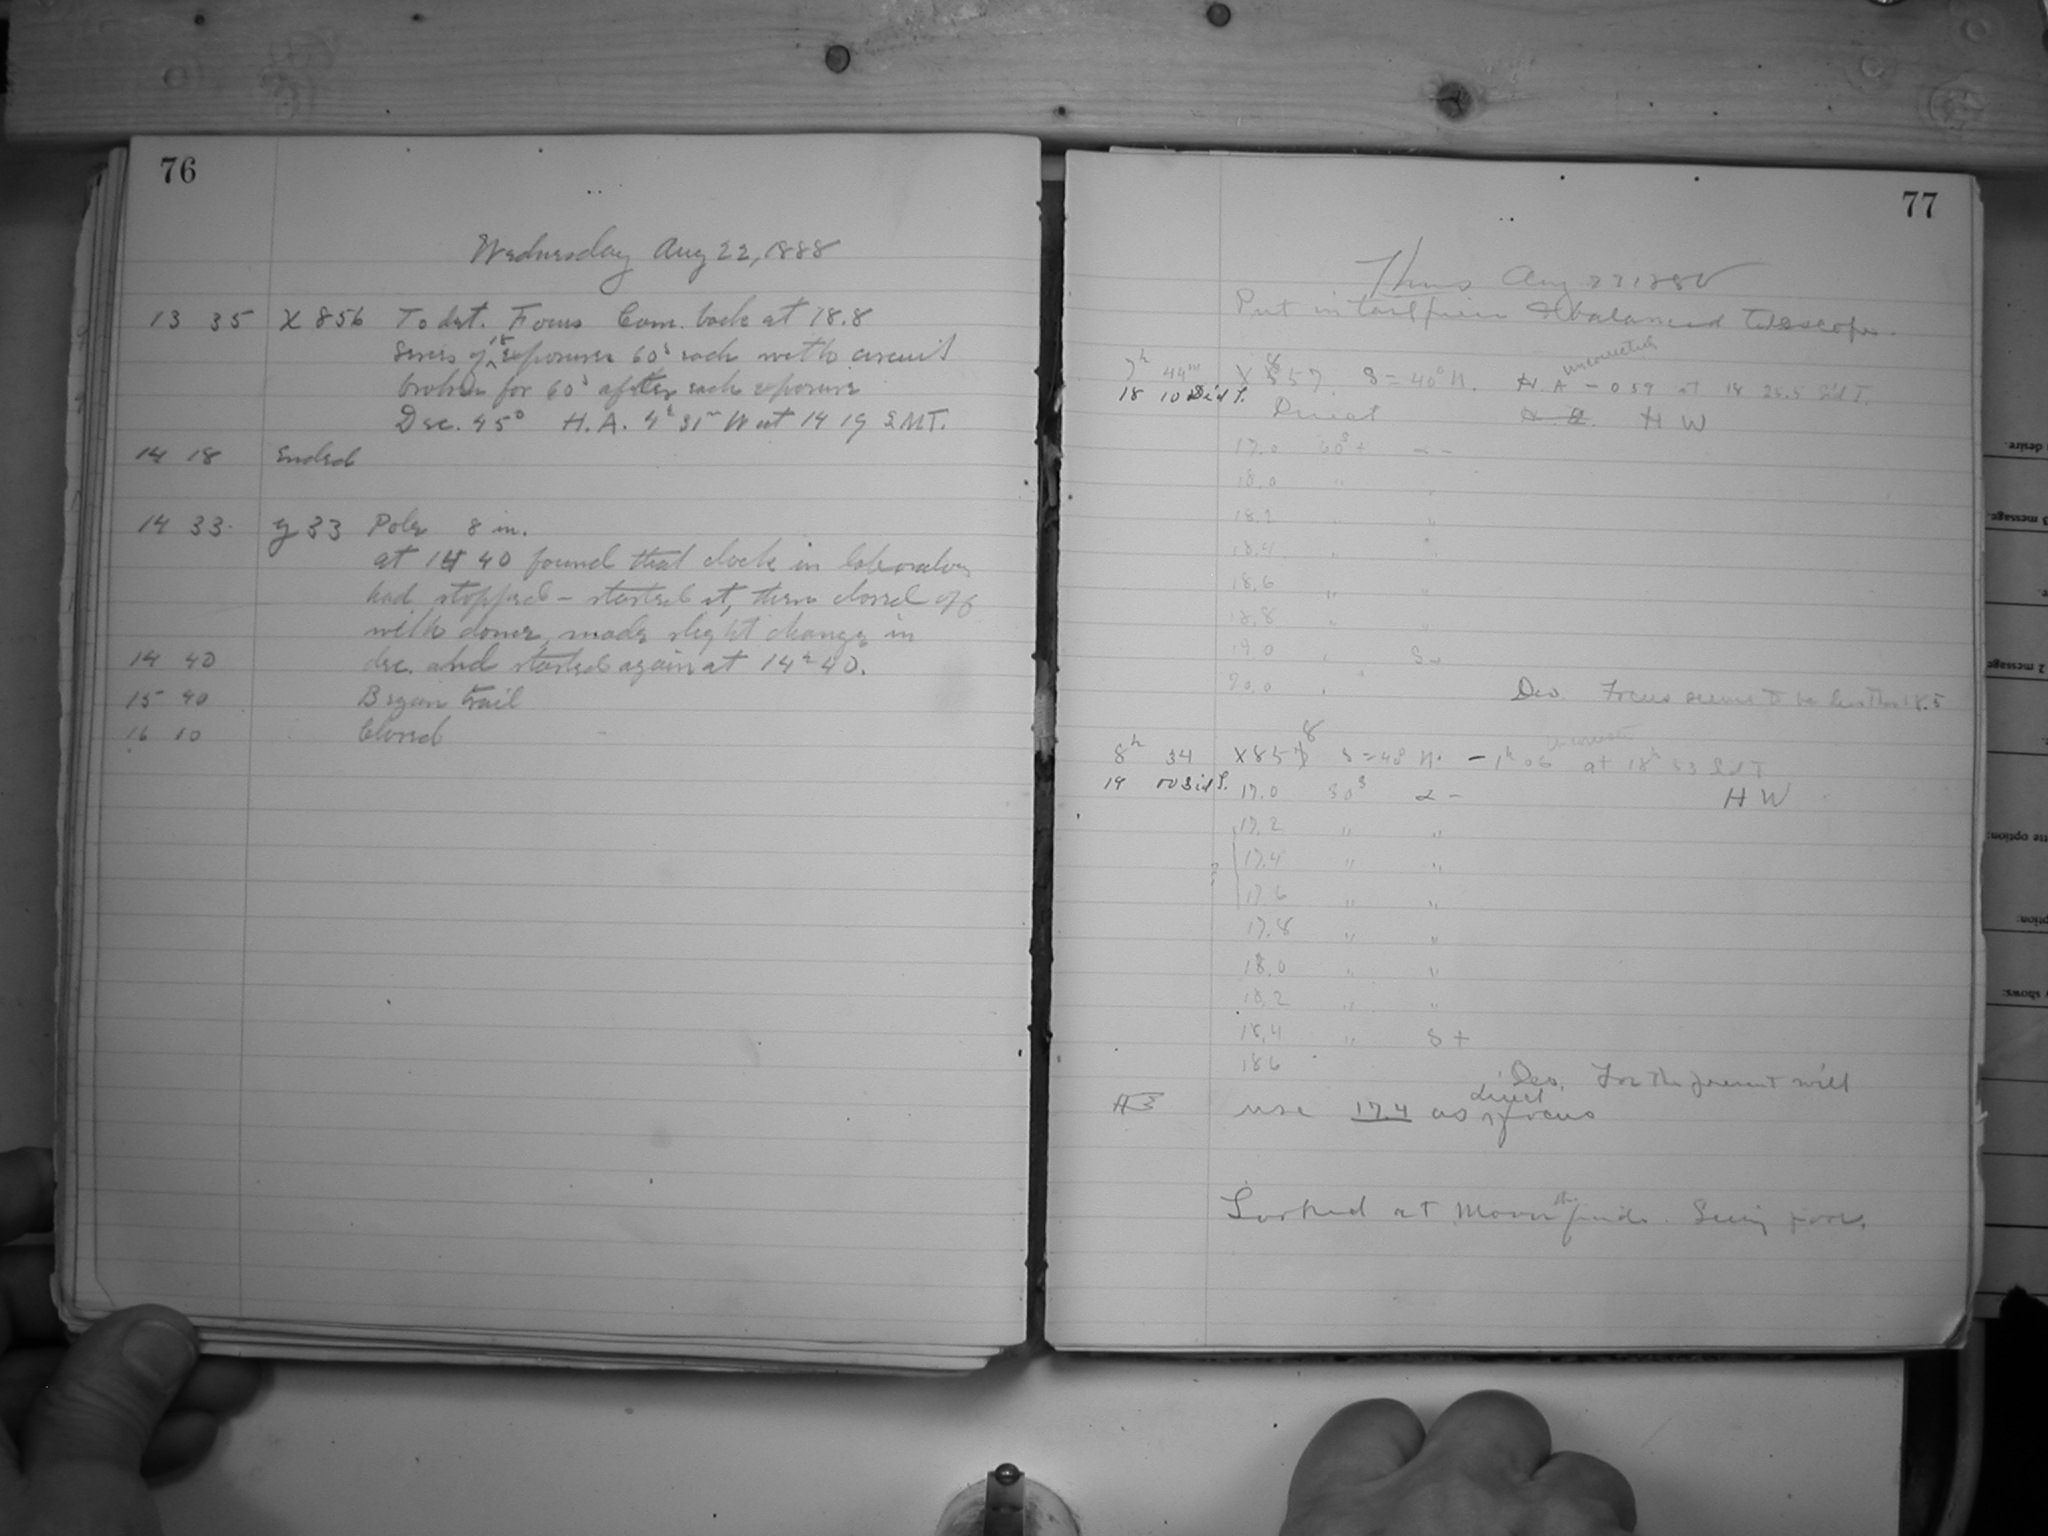 76
Wednesday Aug 22, 1888
13 35 X 856 To det. Focus Cam. back at 18.8
Series of 18 exposures 60s each with circuit
broken for 60s after each exposure
Dec. 45° H.A. 4h 31m W at 14 19 EMT.
14 18 Ended
14 33 y 33 Pole 8 in.
at 14 40 found that clock in laboratory
had stopped – started it, then closed off
with dome, made slight change in
14 40 dec. and started again at 14h 40.
15 40 Began trail
16 10 Closed
77
Thurs Aug 23 1888
Put in tailpiece & balanced Telescope.
7h 44m X 857 δ = 40° N. H.A – 0 59 at 18 25.5 Sid T.
uncorrected
18 10 Sid T. Direct H W
17.0 30s + α –
18.0 " "
18.2 " "
18.4 " "
18.6 " "
18.8 " "
19.0 " δ –
20.0 "
Dev. Focus seems to be less than 18.5
8h 34 X 858 δ = 40° N. – 1h 06 at 18h 53 Sid T
uncorrected
19 00 Sid T. 17.0 30s α – H W
17.2 " "
17.4 " "
17.6 " "
17.8 " "
18.0 " "
18.2 " "
18.4 " δ +
18.6
Dev. For the present will
use 17.4 as direct focus
Looked at Moon
Seeing poor.
desire.
3 message
2 message
option:
ption:
shows: